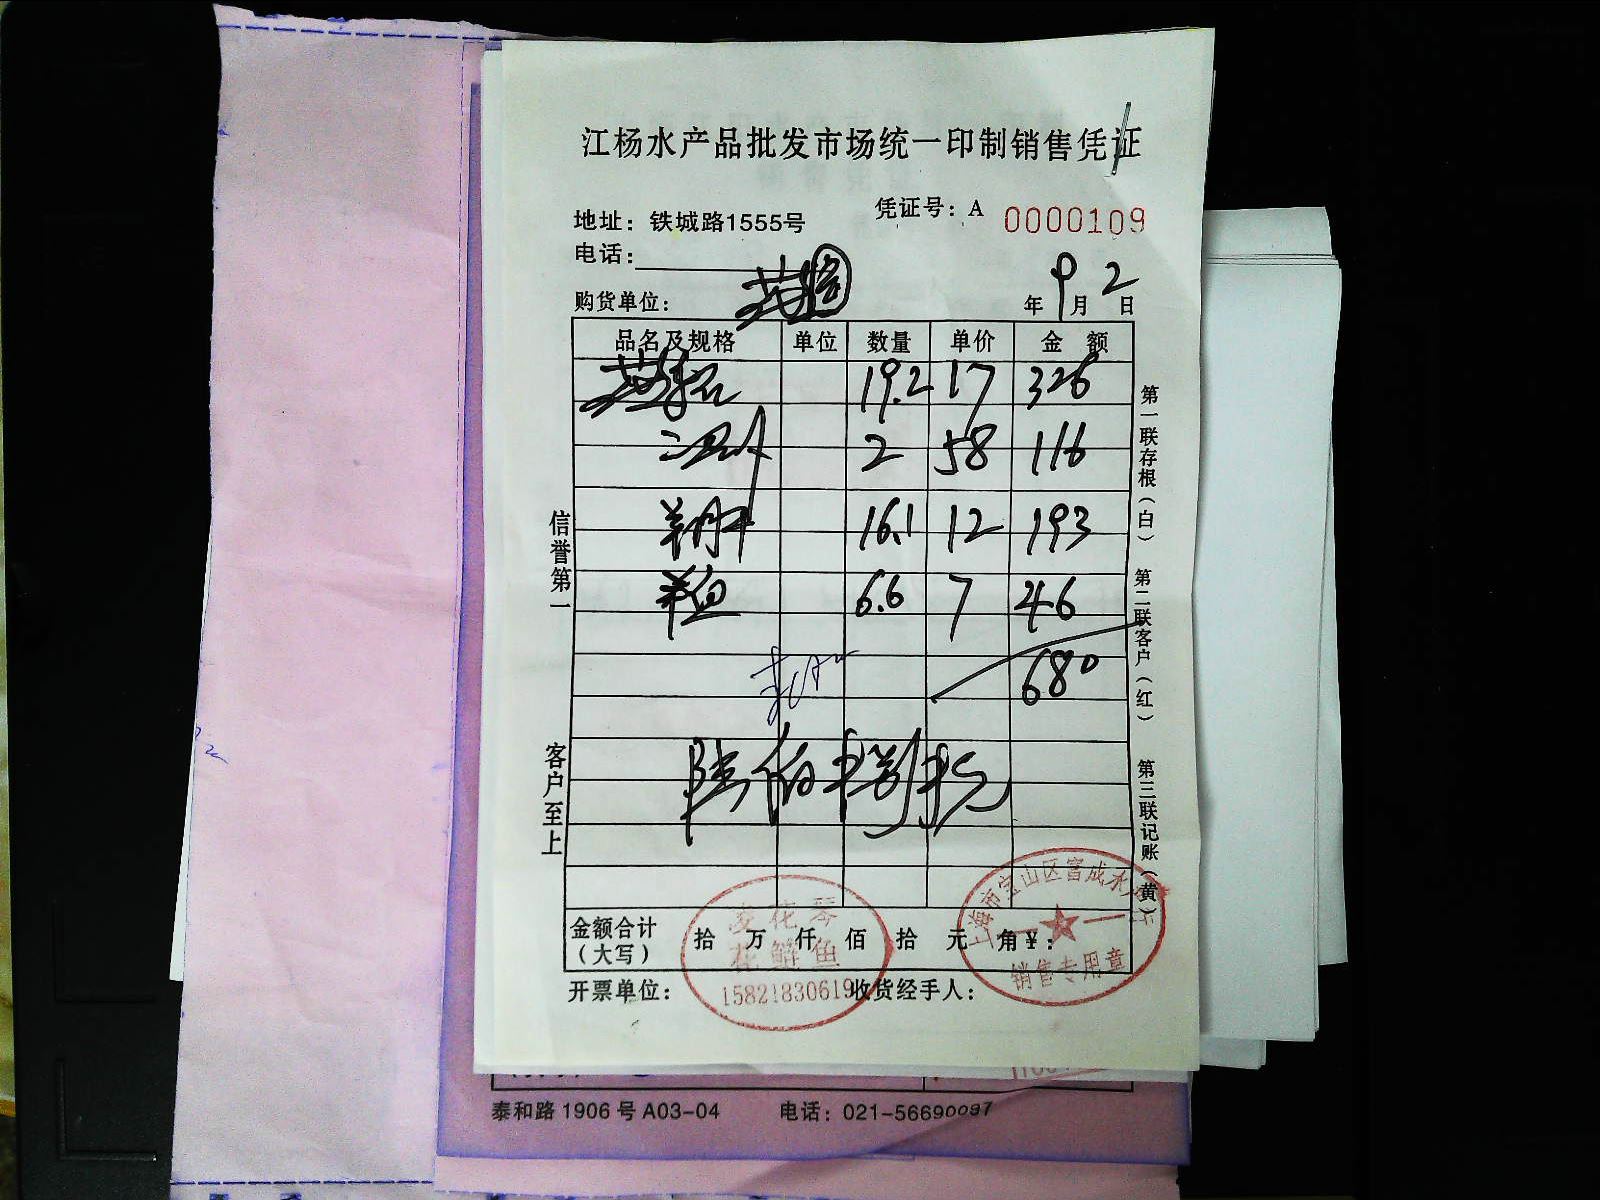 江杨水产品批发市场统一印制销售凭证
地址：铁城路1555号
凭证号：A 0000109
电话：
购货单位：
年9月2日
品名及规格 单位 数量 单价 金额
19.2 17 326
2 58 116
16.1 12 193
6.6 7 46
680
陆佰捌拾元
金额合计（大写） 拾 万 仟 佰 拾 元 角 ￥：
开票单位： 收货经手人：
信誉第一
客户至上
第一联存根（白）
第二联客户（红）
第三联记账（黄）
花琴
花鲢鱼
15821830619
上海市宝山区富成水
销售专用章
泰和路1906号A03-04 电话：021-56690097